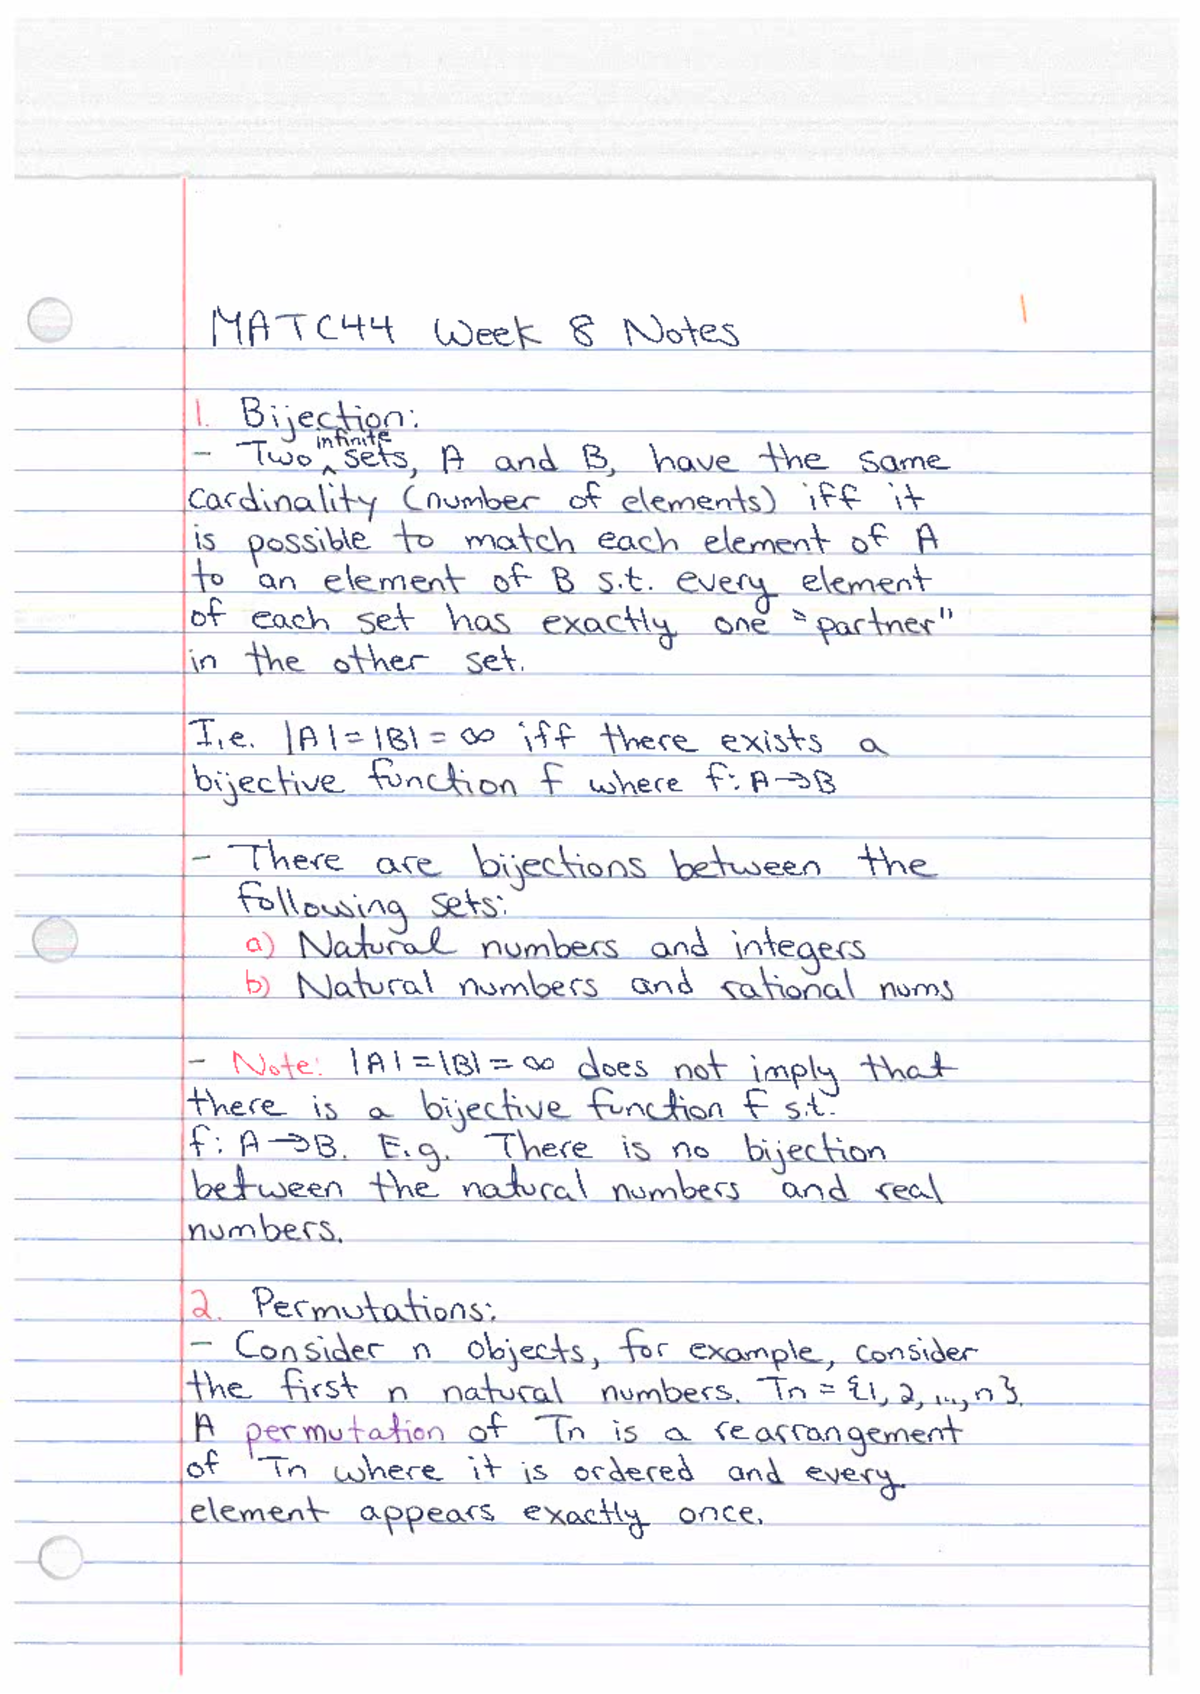 1
MATC44 Week 8 Notes
1. Bijection:
- Two ^infinite sets, A and B, have the same
cardinality (number of elements) iff it
is possible to match each element of A
to an element of B s.t. every element
of each set has exactly one "partner"
in the other set.
I.e. |A| = |B| = ∞ iff there exists a
bijective function f where f: A→B
- There are bijections between the
following sets:
a) Natural numbers and integers
b) Natural numbers and rational nums
- Note: |A| = |B| = ∞ does not imply that
there is a bijective function f s.t.
f: A→B. E.g. There is no bijection
between the natural numbers and real
numbers.
2. Permutations:
- Consider n objects, for example, consider
the first n natural numbers. Tn = {1, 2, ..., n}.
A permutation of Tn is a rearrangement
of Tn where it is ordered and every
element appears exactly once.